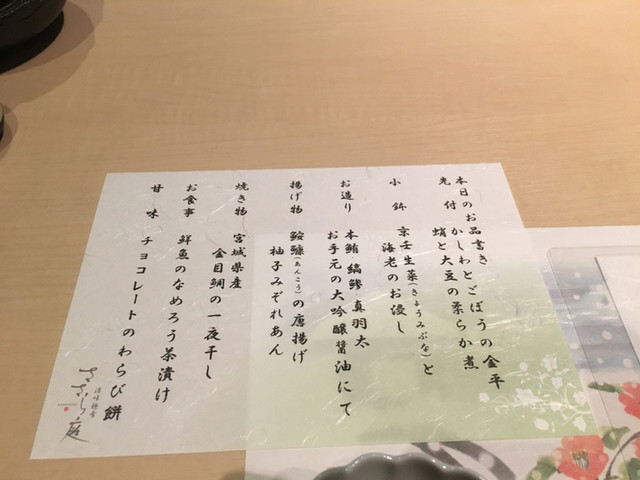 本日のお品書き
先付 かしわとごぼうの金平
蛸と大豆の柔らか煮
小鉢 京壬生菜(きょうみぶな)と
海老のお浸し
お造り 本鮪 縞鯵 真羽太
お手元の大吟醸醤油にて
揚げ物 鮟鱇(あんこう)の唐揚げ
柚子みぞれあん
焼き物 宮城県産
金目鯛の一夜干し
お食事 鮮魚のなめろう茶漬け
甘味 チョコレートのわらび餅